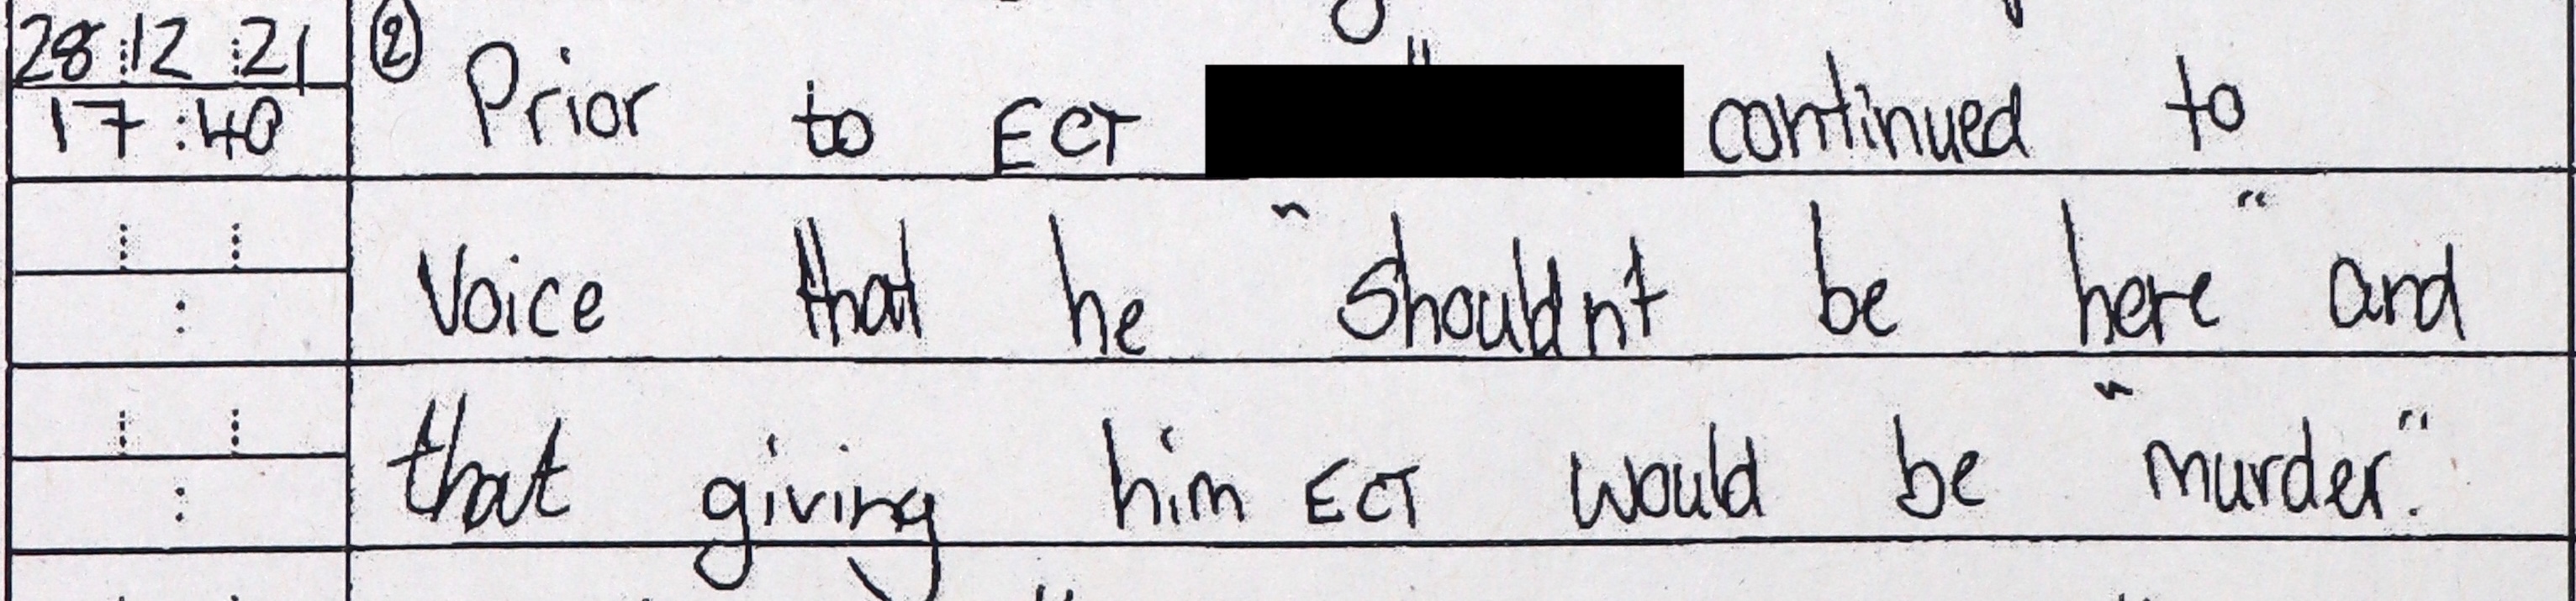 28 12 21 ② Prior to ECT continued to
17:40
Voice that he "shouldnt be here" and
that giving him ECT would be "murder."